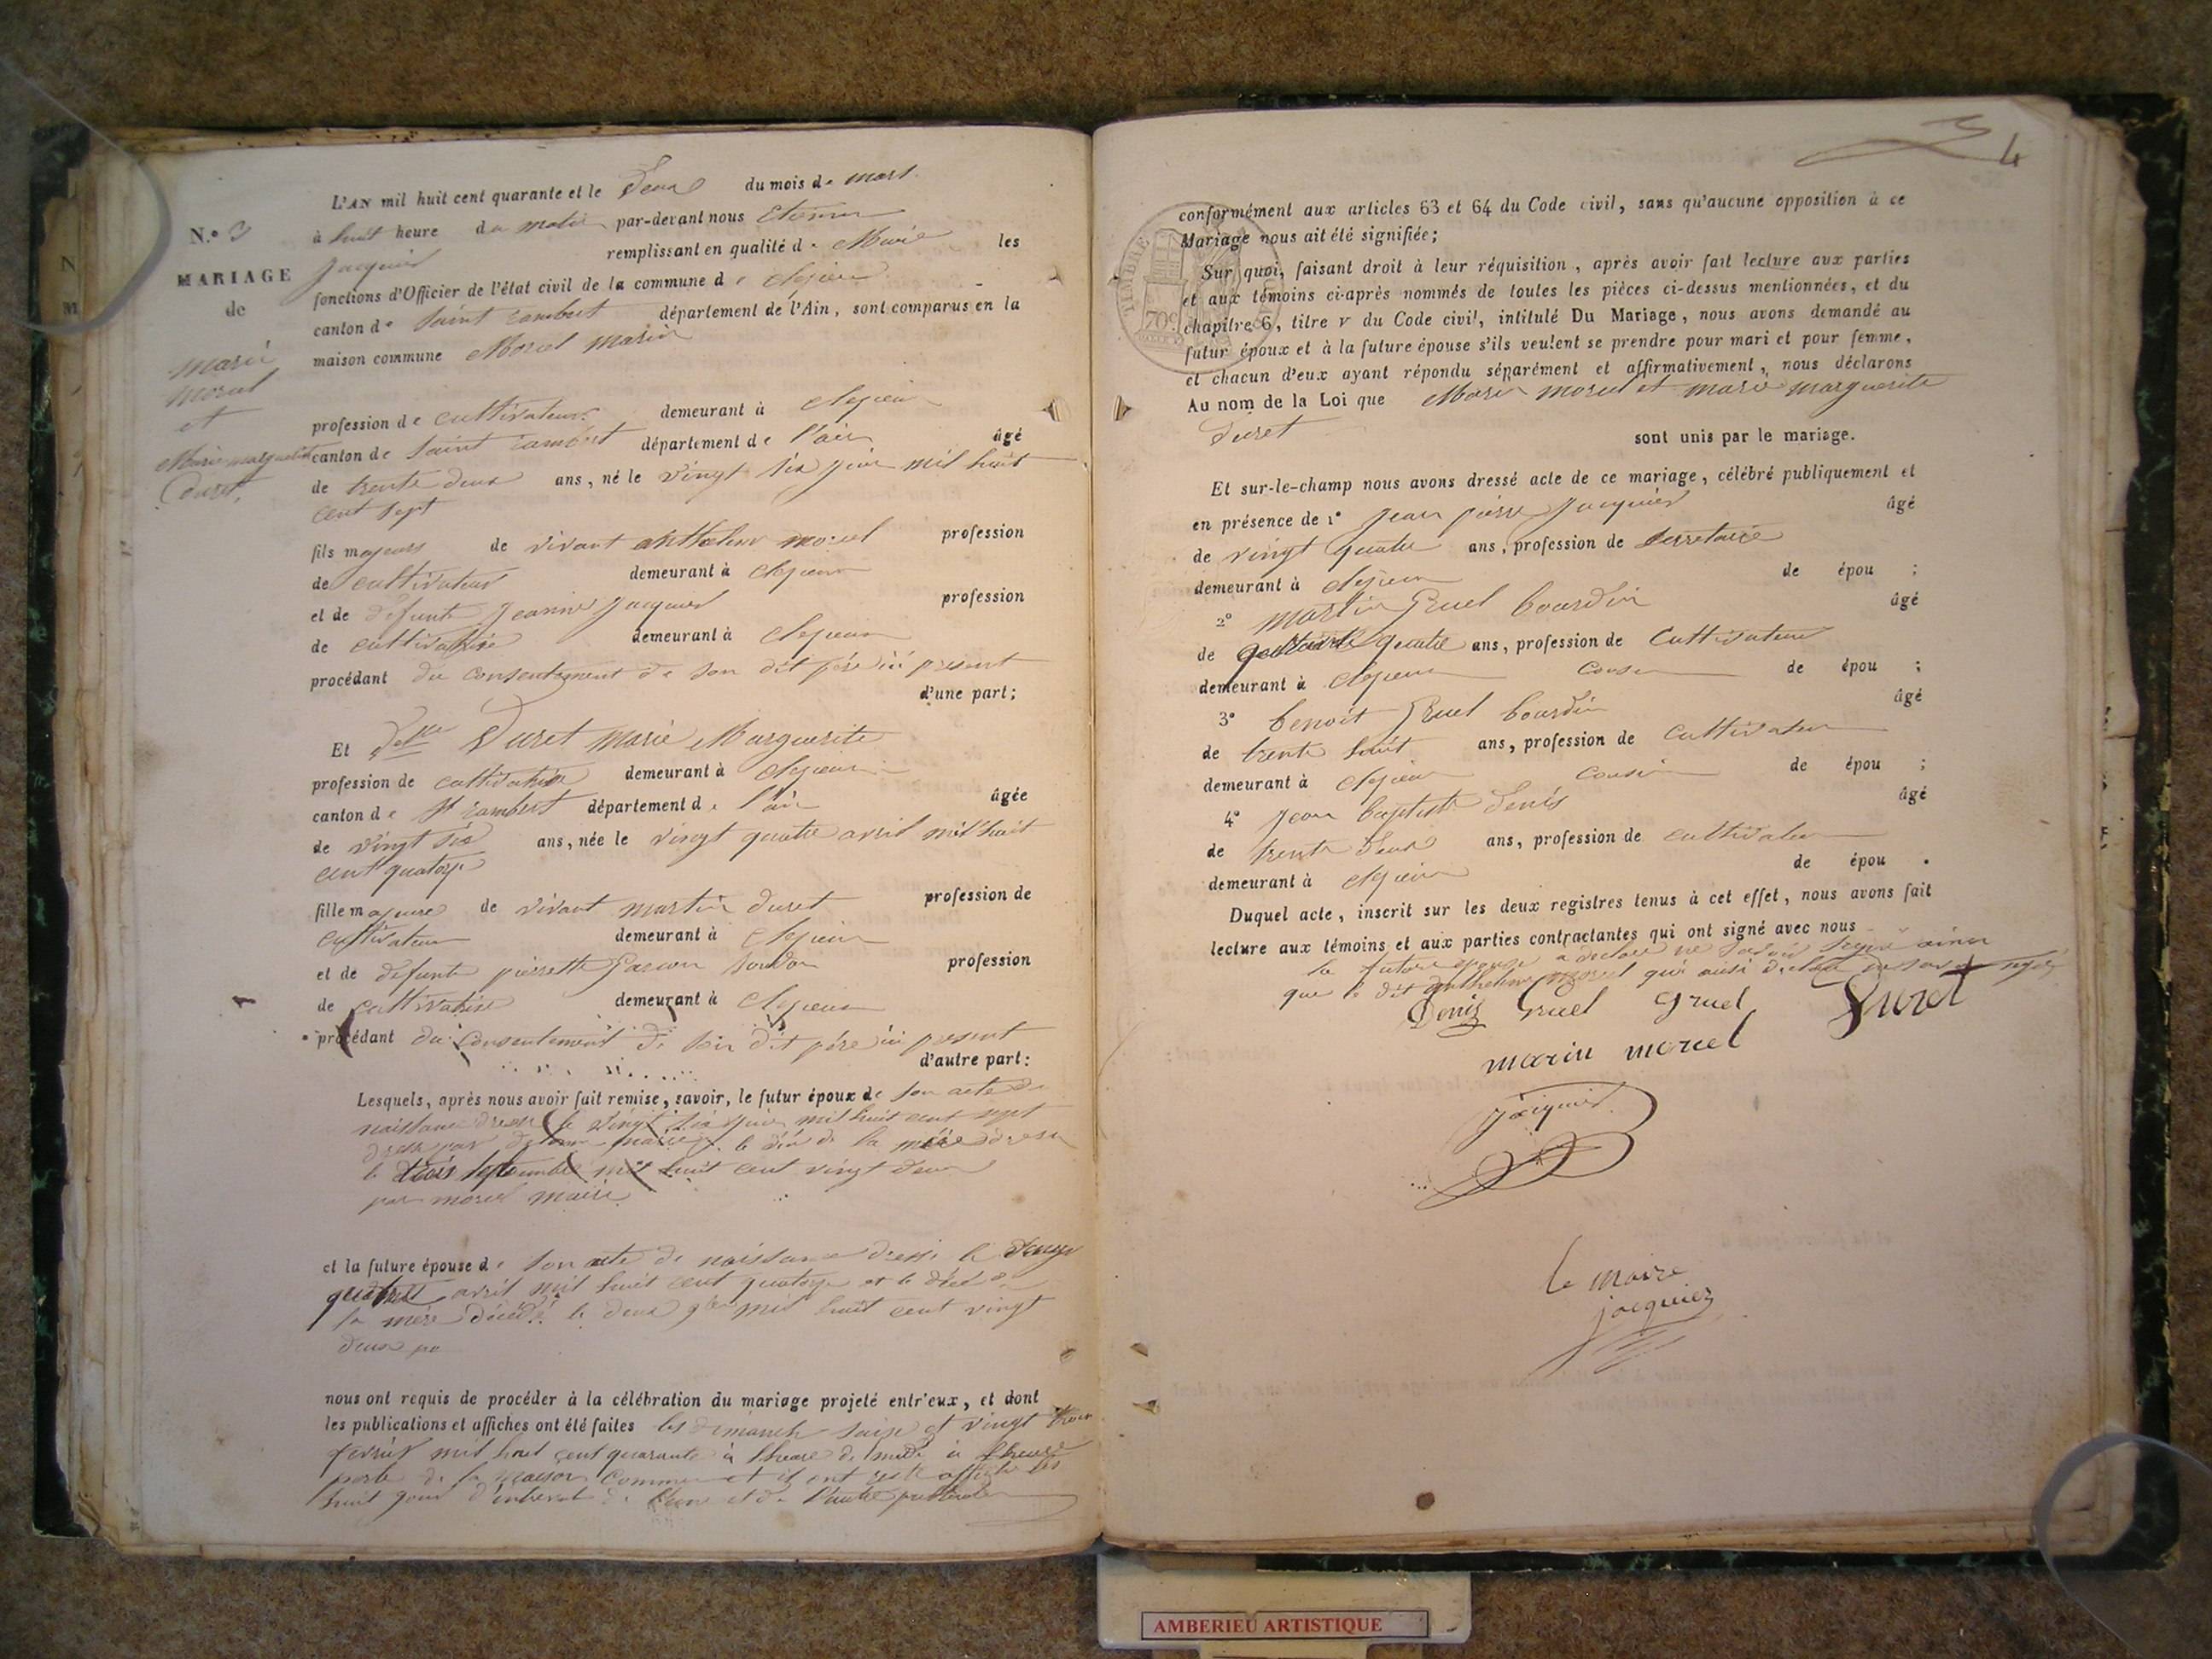 L'AN mil huit cent quarante et le deux du mois de mars
N.º 3
à huit heure du matin par-devant nous Etienne
Jacquier remplissant en qualité de Maire les
MARIAGE
fonctions d'Officier de l'état civil de la commune de
de
canton de Saint Rambert département de l'Ain, sont comparus en la
maison commune Morel Marin
Marin
Morel
et
Marie marguerite
Duret
profession de cultivateur demeurant à
canton de Saint Rambert département de l'ain âgé
de trente deux ans, né le vingt six juin mil huit
cent sept
fils majeur de vivant anthelme morel profession
de cultivateur demeurant à
et de défunte Jeanne Jacquier profession
de cultivatrice demeurant à
procédant du consentement de son dit père ici present
d'une part;
Et Delle Duret marie Marguerite
profession de cultivatrice demeurant à
canton de St Rambert département de l'ain âgée
de vingt six ans, née le vingt quatre avril mil huit
cent quatorze
fille majeure de vivant martin duret profession de
cultivateur demeurant à
et de défunte pierrette profession
de cultivatrice demeurant à
procédant du consentement de son dit père ici present
d'autre part:
Lesquels, après nous avoir fait remise, savoir, le futur époux de son acte de
naissance dressé le vingt six juin mil huit cent sept
dressé par maire le décé de la mère dressé
le trois septembre mil huit cent vingt deux
par morel maire
et la future épouse de son acte de naissance dressé le vingt
quatre avril mil huit cent quatorze et le décé de
la mère décédé le deux 9bre mil huit cent vingt
deux pa
nous ont requis de procéder à la célébration du mariage projeté entr'eux, et dont
les publications et affiches ont été faites les dimanche seize et vingt trois
fevrier mil huit cent quarante à l'heure de midi
porte de la maison commune et ont resté affiché les
huit jour d'interval de l'une et de l'autre
4
conformément aux articles 63 et 64 du Code civil, sans qu'aucune opposition à ce
Mariage nous ait été signifiée;
TIMBRE
70c
Sur quoi, faisant droit à leur réquisition, après avoir fait lecture aux parties
et aux témoins ci-après nommés de toutes les pièces ci-dessus mentionnées, et du
chapitre 6, titre v du Code civil, intitulé Du Mariage, nous avons demandé au
futur époux et à la future épouse s'ils veulent se prendre pour mari et pour femme,
et chacun d'eux ayant répondu séparément et affirmativement, nous déclarons
Au nom de la Loi que Marin morel et marie marguerite
Duret
sont unis par le mariage.
Et sur-le-champ nous avons dressé acte de ce mariage, célébré publiquement et
en présence de 1º Jean pierre Jacquier âgé
de vingt quatre ans, profession de secretaire
demeurant à de épou ;
2º martin Gruel bourdin âgé
de quatre ans, profession de Cultivateur
demeurant à cousin de épou ;
3º benoit Gruel bourdin âgé
de trente huit ans, profession de cultivateur
demeurant à cousin de épou ;
4º Jean baptiste denis âgé
de trente deux ans, profession de cultivateur
demeurant à de épou .
Duquel acte, inscrit sur les deux registres tenus à cet effet, nous avons fait
lecture aux témoins et aux parties contractantes qui ont signé avec nous
la future epouse a declaré ne savoir signé ainsi
que le dit anthelme morel qui aussi declaré ne savoir signé
Denis Gruel Gruel Duret
marin morel
Jacquier
le maire
jacquier
AMBERIEU ARTISTIQUE